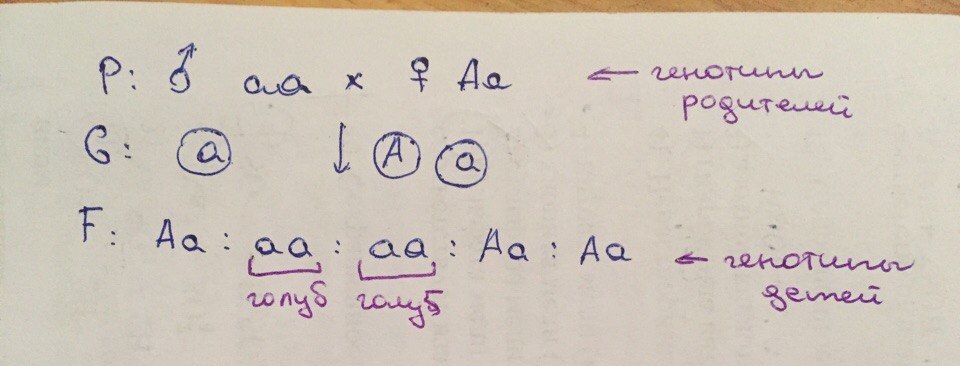 P: ♂ aa × ♀ Aa ← генотипы родителей
G: a ↓ A a
F: Aa : aa : aa : Aa : Aa ← генотипы детей
голуб голуб